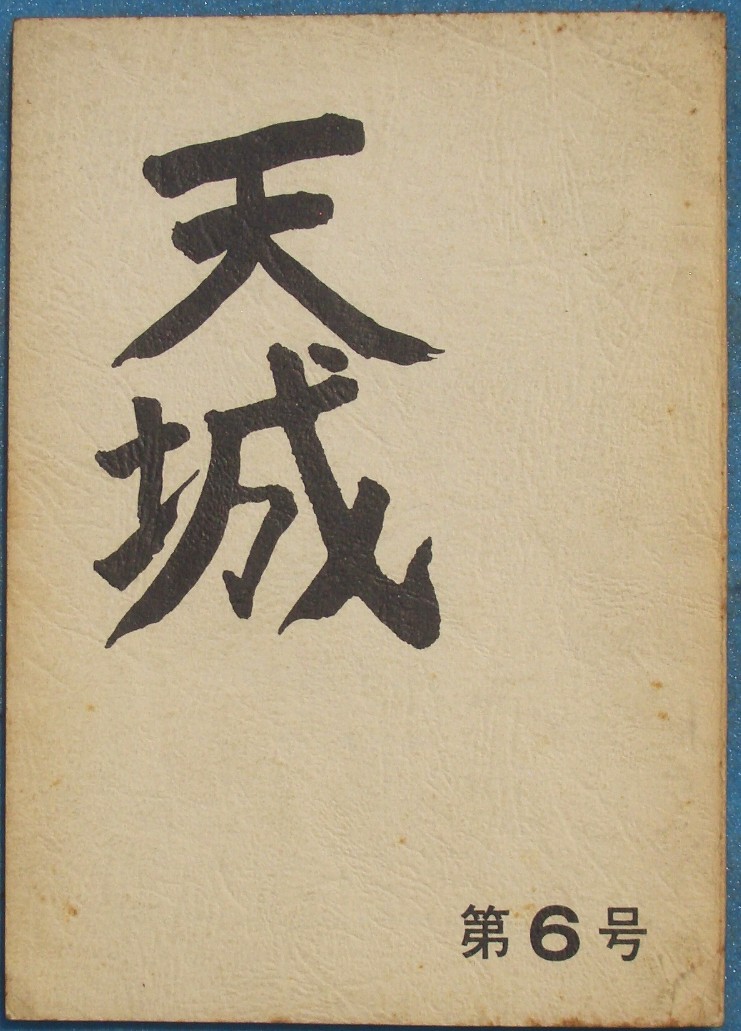 天城
第6号